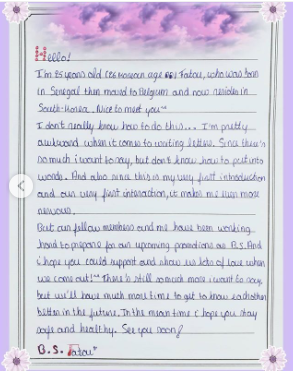 Hello!
I'm 25 years old (26 korean age) Fatou, who was born
in Senegal then moved to Belgium and now resides in
South-Korea. Nice to meet you~
I don't really know how to do this... I'm pretty
awkward when it comes to writing letters. Since there's
so much i want to say, but don't know how to put into
words. And also since this is my very first introduction
and our very first interaction, it makes me even more
nervous.
But our fellow members and me have been working
hard to prepare for our upcoming promotions as B.S. And
i hope you could support and show us lots of love when
we come out! There is still so much more i want to say
but we'll have much more time to get to know eachother
better in the future. In the mean time i hope you stay
safe and healthy. See you soon!
B.S. Fatou